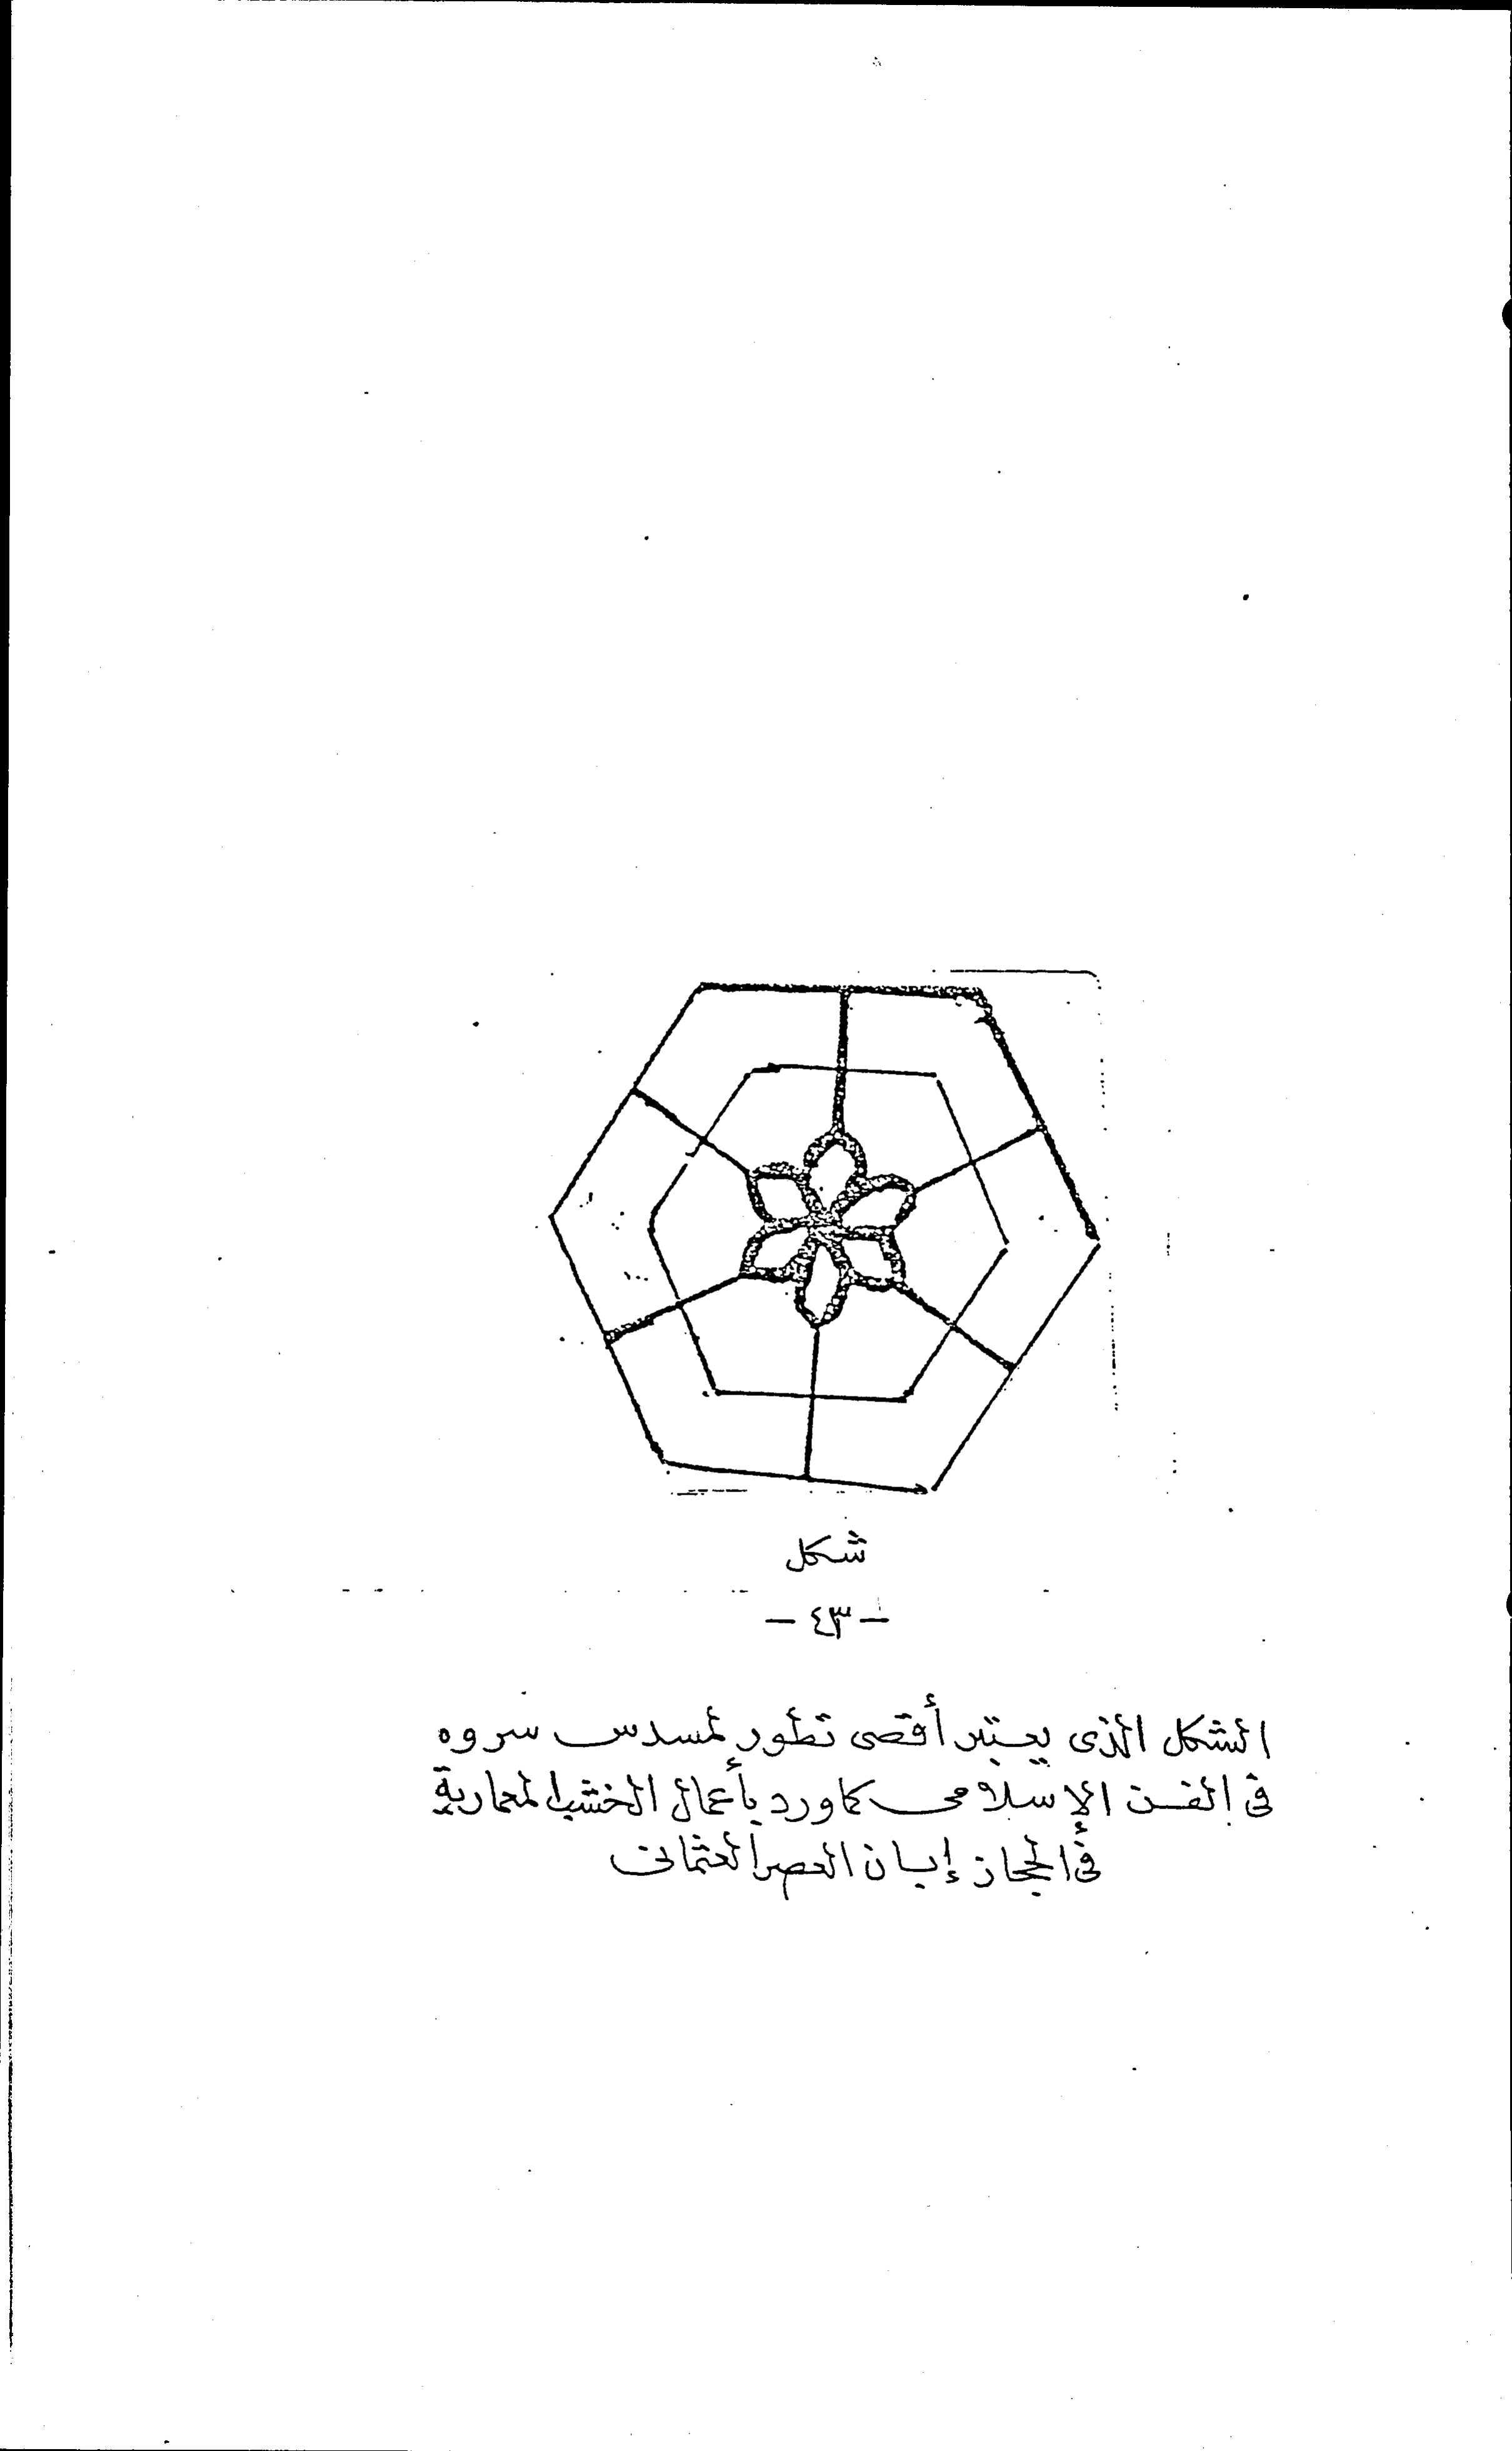 شكل
- ٤٣ -
الشكل الذى يعتبر أقصى تطور لمسدس سروه
فى الفن الإسلامى كما ورد بأعمال الخشب المعمارية
فى الحجاز إبان العصر العثمانى